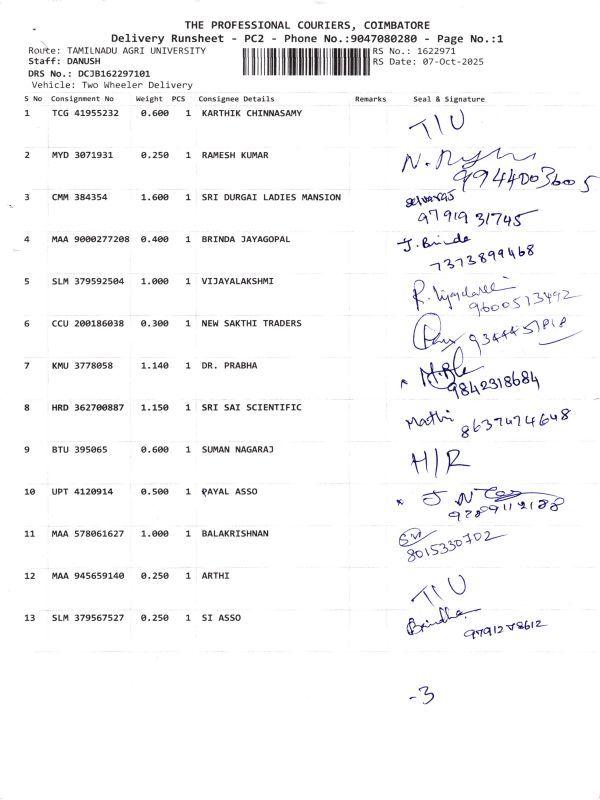 THE PROFESSIONAL COURIERS, COIMBATORE
Delivery Runsheet - PC2 - Phone No.:9047080280 - Page No.:1
Route: TAMILNADU AGRI UNIVERSITY RS No.: 1622971
Staff: DANUSH RS Date: 07-Oct-2025
DRS No.: DCJB162297101
Vehicle: Two Wheeler Delivery
S No Consignment No Weight PCS Consignee Details Remarks Seal & Signature
1 TCG 41955232 0.600 1 KARTHIK CHINNASAMY T/U
2 MYD 3071931 0.250 1 RAMESH KUMAR
9944003600 5
3 CMM 384354 1.600 1 SRI DURGAI LADIES MANSION selvaraj
9791931745
4 MAA 9000277208 0.400 1 BRINDA JAYAGOPAL J. Brinda
7373899468
5 SLM 379592504 1.000 1 VIJAYALAKSHMI
9600513492
6 CCU 200186038 0.300 1 NEW SAKTHI TRADERS
7 KMU 3778058 1.140 1 DR. PRABHA
9842318684
8 HRD 362700887 1.150 1 SRI SAI SCIENTIFIC Mathi
8637474648
9 BTU 395065 0.600 1 SUMAN NAGARAJ H/R
10 UPT 4120914 0.500 1 PAYAL ASSO
11 MAA 578061627 1.000 1 BALAKRISHNAN
8015330702
12 MAA 945659140 0.250 1 ARTHI T/U
13 SLM 379567527 0.250 1 SI ASSO Brindha
-3